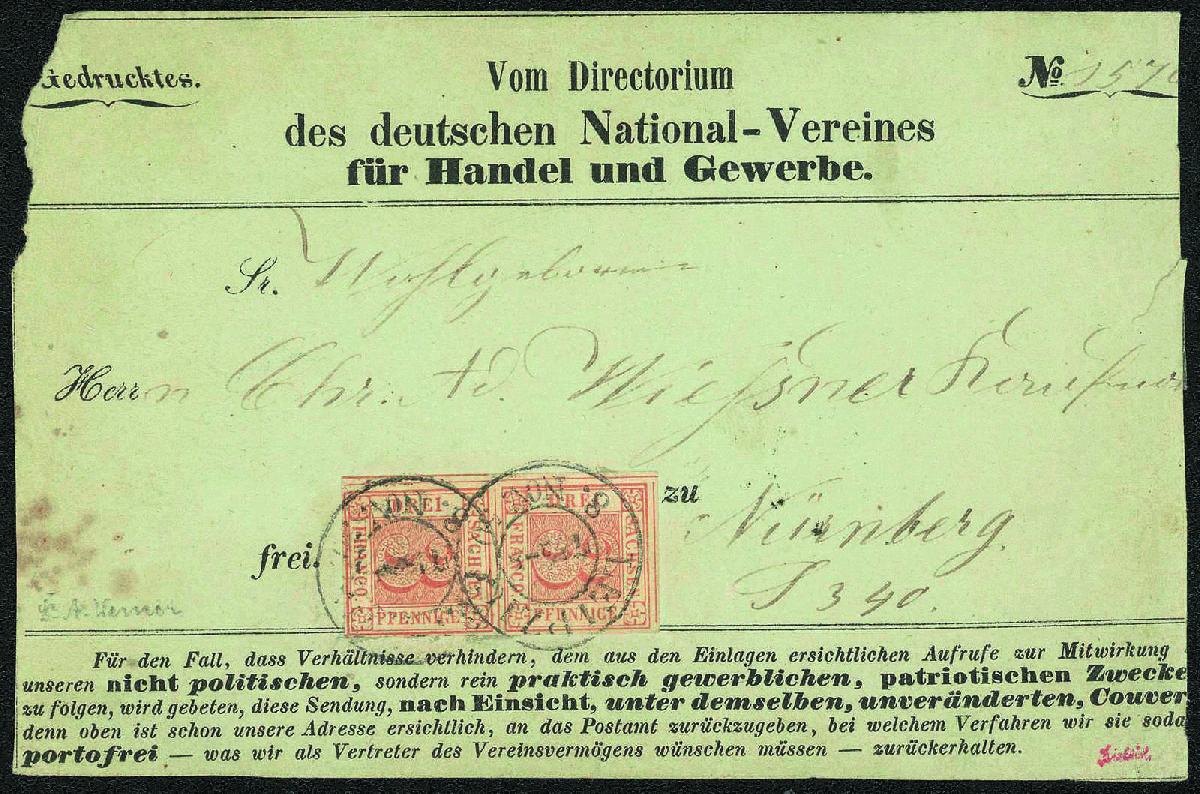 Gedrucktes.
Vom Directorium
No. 157
des deutschen National-Vereines
für Handel und Gewerbe.
Sr. Wohlgeboren
Herrn Chr. Ad. Wießner Kaufman
DREI
FRANCO
PFENNIGE
3
DREI
FRANCO
PFENNIGE
3
LEIPZIG
zu
Nürnberg.
frei.
S 340.
Für den Fall, dass Verhältnisse verhindern, dem aus den Einlagen ersichtlichen Aufrufe zur Mitwirkung
unseren nicht politischen, sondern rein praktisch gewerblichen, patriotischen Zwecke
zu folgen, wird gebeten, diese Sendung, nach Einsicht, unter demselben, unveränderten, Couver
denn oben ist schon unsere Adresse ersichtlich, an das Postamt zurückzugeben, bei welchem Verfahren wir sie soda
portofrei — was wir als Vertreter des Vereinsvermögens wünschen müssen — zurückerhalten.